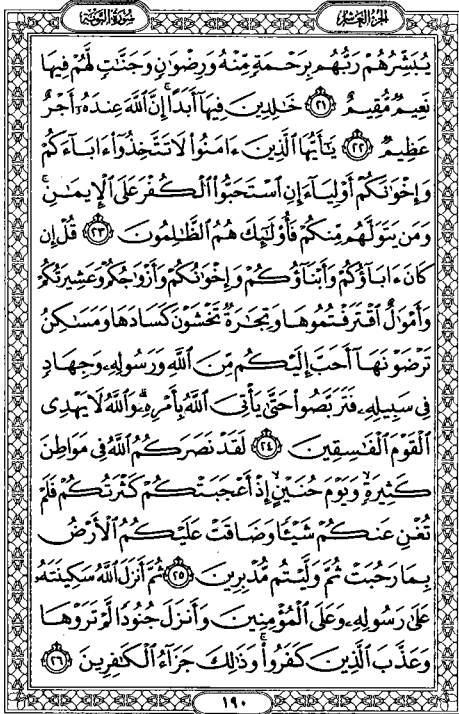 الجزء العاشر
سورة التوبة
يُبَشِّرُهُمْ رَبُّهُم بِرَحْمَةٍ مِّنْهُ وَرِضْوَٰنٍ وَجَنَّٰتٍ لَّهُمْ فِيهَا
نَعِيمٌ مُّقِيمٌ ۝٢١ خَٰلِدِينَ فِيهَآ أَبَدًا ۚ إِنَّ ٱللَّهَ عِندَهُۥٓ أَجْرٌ
عَظِيمٌ ۝٢٢ يَٰٓأَيُّهَا ٱلَّذِينَ ءَامَنُوا۟ لَا تَتَّخِذُوٓا۟ ءَابَآءَكُمْ
وَإِخْوَٰنَكُمْ أَوْلِيَآءَ إِنِ ٱسْتَحَبُّوا۟ ٱلْكُفْرَ عَلَى ٱلْإِيمَٰنِ ۚ
وَمَن يَتَوَلَّهُم مِّنكُمْ فَأُو۟لَٰٓئِكَ هُمُ ٱلظَّٰلِمُونَ ۝٢٣ قُلْ إِن
كَانَ ءَابَآؤُكُمْ وَأَبْنَآؤُكُمْ وَإِخْوَٰنُكُمْ وَأَزْوَٰجُكُمْ وَعَشِيرَتُكُمْ
وَأَمْوَٰلٌ ٱقْتَرَفْتُمُوهَا وَتِجَٰرَةٌ تَخْشَوْنَ كَسَادَهَا وَمَسَٰكِنُ
تَرْضَوْنَهَآ أَحَبَّ إِلَيْكُم مِّنَ ٱللَّهِ وَرَسُولِهِۦ وَجِهَادٍ
فِى سَبِيلِهِۦ فَتَرَبَّصُوا۟ حَتَّىٰ يَأْتِىَ ٱللَّهُ بِأَمْرِهِۦ ۗ وَٱللَّهُ لَا يَهْدِى
ٱلْقَوْمَ ٱلْفَٰسِقِينَ ۝٢٤ لَقَدْ نَصَرَكُمُ ٱللَّهُ فِى مَوَاطِنَ
كَثِيرَةٍ ۙ وَيَوْمَ حُنَيْنٍ ۙ إِذْ أَعْجَبَتْكُمْ كَثْرَتُكُمْ فَلَمْ
تُغْنِ عَنكُمْ شَيْـًٔا وَضَاقَتْ عَلَيْكُمُ ٱلْأَرْضُ
بِمَا رَحُبَتْ ثُمَّ وَلَّيْتُم مُّدْبِرِينَ ۝٢٥ ثُمَّ أَنزَلَ ٱللَّهُ سَكِينَتَهُۥ
عَلَىٰ رَسُولِهِۦ وَعَلَى ٱلْمُؤْمِنِينَ وَأَنزَلَ جُنُودًا لَّمْ تَرَوْهَا
وَعَذَّبَ ٱلَّذِينَ كَفَرُوا۟ ۚ وَذَٰلِكَ جَزَآءُ ٱلْكَٰفِرِينَ ۝٢٦
١٩٠